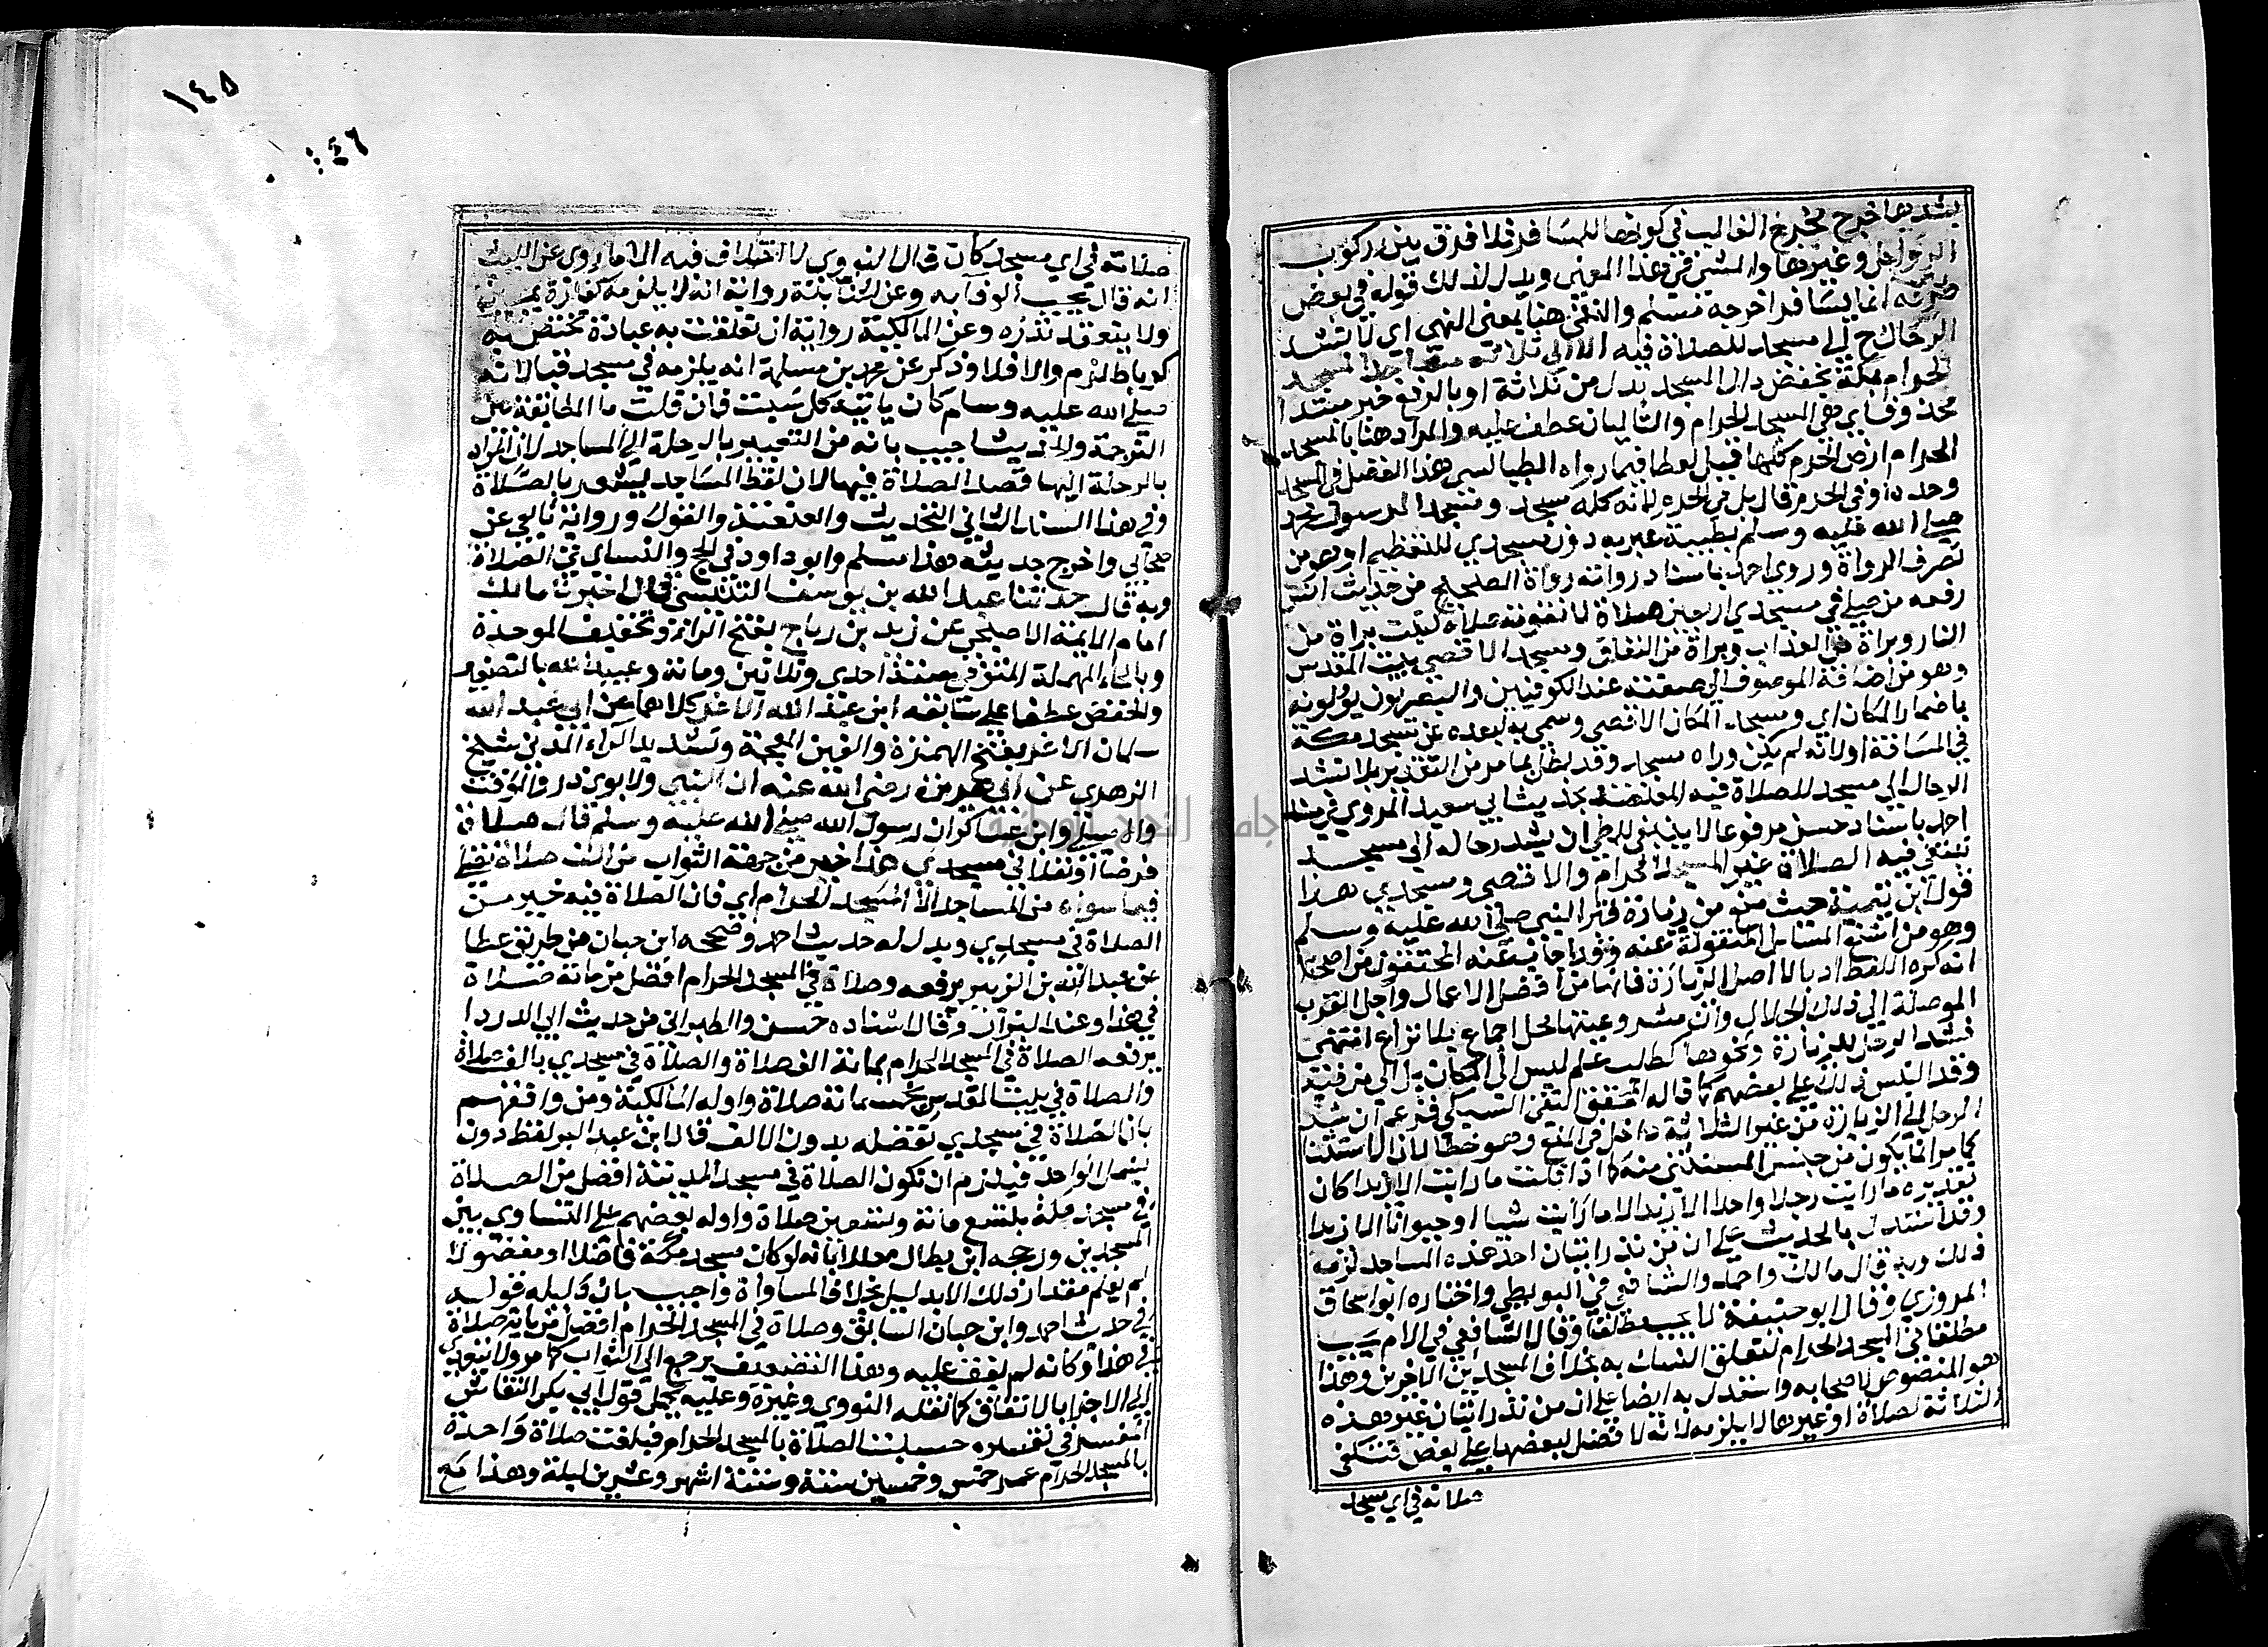 بشدها خرج مخرج الغالب في كونها للمسافر فلا فرق بين ركوب
الرواحل وغيرها والمشي في هذا المعنى ويدل لذلك قوله في بعض
طرقه انما يسافر اخرجه مسلم والنفي هنا بمعنى النهي اي لا تشد
الرحال الى مسجد للصلاة فيه الا الى ثلاثة مساجد المسجد
الحرام بمكة بخفض دال المسجد بدل من ثلاثة او بالرفع خبر مبتدا
محذوف اي هي المسجد الحرام والتاليان عطف عليه والمراد هنا بالمسجد
الحرام ارض الحرم كلها قيل لعطا فيما رواه الطيالسي هذا الفضل في المسجد
وحده او في الحرم قال بل في الحرم لانه كله مسجد ومسجد الرسول محمد
صلى الله عليه وسلم بطيبة عبر به دون مسجدي للتعظيم او هو من
تصرف الرواة وروى احمد باسناد رواته رواة الصحيح من حديث انس
رفعه من صلى في مسجدي اربعين صلاة لا تفوته صلاة كتبت براة من
النار وبراة من العذاب وبراة من النفاق ومسجد الاقصى بيت المقدس
وهو من اضافة الموصوف الى صفته عند الكوفيين والبصريون يؤولونه
باضمار المكان اي ومسجد المكان الاقصى وسمي به لبعده عن مسجد مكة
في المسافة او لانه لم يكن وراه مسجد وقد بطل بما مر من التقدير بلا تشد
الرحال الى مسجد للصلاة فيه المعتضد بحديث ابي سعيد المروي في مسند
احمد باسناد حسن مرفوعا لا ينبغي للمطي ان يشد رحاله الى مسجد
تبتغي فيه الصلاة غير المسجد الحرام والاقصى ومسجدي هذا
قول ابن تيمية حيث منع من زيارة قبر النبي صلى الله عليه وسلم
وهو من ابشع المسائل المنقولة عنه وقد اجاب عنه المحققون من اصحابه
انه كره اللفظ ادبا لا اصل الزيارة فانها من افضل الاعمال واجل القرب
الموصلة الى ذي الجلال وان مشروعيتها محل اجماع بلا نزاع انتهى
فشد الرحل للزيارة ونحوها كطلب علم ليس الى المكان بل الى من فيه
وقد التبس ذلك على بعضهم كما قاله المحقق التقي السبكي فزعم ان شد
الرحل الى الزيارة من غير الثلاثة داخل في المنع وهو خطا لان الاستثنا
كما مر انما يكون من جنس المستثنى منه كما اذا قلت ما رايت الا زيدا كان
تقديره ما رايت رجلا واحدا الا زيدا لا ما رايت شيا او حيوانا الا زيدا
وقد استدل بالحديث على ان من نذر اتيان احد هذه المساجد لزمه
ذلك وبه قال مالك واحمد والشافعي في البويطي واختاره ابو اسحاق
المروزي وقال ابو حنيفة لا يجب مطلقا وقال الشافعي في الام يجب
مطلقا في المسجد الحرام لتعلق النسك به بخلاف المسجدين الاخرين وهذا
هو المنصوص لاصحابه واستدل به ايضا على ان من نذر اتيان غير هذه
الثلاثة لصلاة او غيرها لا يلزمه لانه لا فضل لبعضها على بعض فتكفي
صلاته في اي مسجد
١٤٥
٤٦
صلاته في اي مسجد كان قال النووي لا اختلاف فيه الا ما روي عن الليث
انه قال يجب الوفا به وعن الحنابلة رواية انه لا يلزمه كفارة يمين
ولا ينعقد نذره وعن المالكية رواية ان تعلقت به عبادة تختص به
كرباط لزم والا فلا وذكر عن محمد بن مسلمة انه يلزمه في مسجد قبا لانه
صلى الله عليه وسلم كان ياتيه كل سبت فان قلت ما المطابقة بين
الترجمة والحديث اجيب بانه من التعبير بالرحلة الى المساجد لان المراد
بالرحلة اليها قصد الصلاة فيها لان لفظ المساجد يشعر بالصلاة
وفي هذا السند الثاني التحديث والعنعنة والقول ورواية تابعي عن
صحابي واخرج حديثه هذا مسلم وابو داود في الحج والنساي في الصلاة
وبه قال حدثنا عبد الله بن يوسف التنيسي قال اخبرنا مالك
امام الايمة الاصبحي عن زيد بن رباح بفتح الراء وتخفيف الموحدة
وبالحاء المهملة المتوفى سنة احدى وثلاثين وماية وعبيد الله بالتصغير
والخفض عطفا على سابقه ابن عبد الله الاغر كلاهما عن ابي عبد الله
سلمان الاغر بفتح الهمزة والغين المعجمة وتشديد الراء المدني شيخ
الزهري عن ابي هريرة رضي الله عنه ان النبي ولابوي ذر والوقت
والاصيلي وابن عساكر ان رسول الله صلى الله عليه وسلم قال صلاة
فرضا او نفلا في مسجدي هذا خير من جهة الثواب من الف صلاة تصلى
فيما سواه من المساجد الا المسجد الحرام اي فان الصلاة فيه خير من
الصلاة في مسجدي ويدل له حديث احمد وصححه ابن حبان من طريق عطا
عن عبد الله بن الزبير رفعه وصلاة في المسجد الحرام افضل من مائة صلاة
في هذا وعند البزار وقال اسناده حسن والطبراني من حديث ابي الدردا
رفعه الصلاة في المسجد الحرام بمائة الف صلاة والصلاة في مسجدي بالف صلاة
والصلاة في بيت المقدس بخمسمائة صلاة واوله المالكية ومن وافقهم
بان الصلاة في مسجدي تفضله بدون الالف قال ابن عبد البر لفظ دون
يشمل الواحد فيلزم ان تكون الصلاة في مسجد المدينة افضل من الصلاة
في مسجد مكة بتسع مائة وتسعين صلاة واوله بعضهم على التساوي بين
المسجدين ورجحه ابن بطال معللا بانه لو كان مسجد مكة فاضلا او مفضولا
لم يعلم مقدار ذلك الا بدليل بخلاف المساواة واجيب بان دليله قوله
في حديث احمد وابن حبان السابق وصلاة في المسجد الحرام افضل من ماية صلاة
في هذا وكانه لم يقف عليه وهذا التضعيف يرجع الى الثواب كما مر ولا يتعدى
الى الاجزا بالاتفاق كما نقله النووي وغيره وعليه يحمل قول ابي بكر النقاش
المفسر في تفسيره حسبت الصلاة بالمسجد الحرام فبلغت صلاة واحدة
بالمسجد الحرام عمر خمس وخمسين سنة وستة اشهر وعشرين ليلة وهذا مع